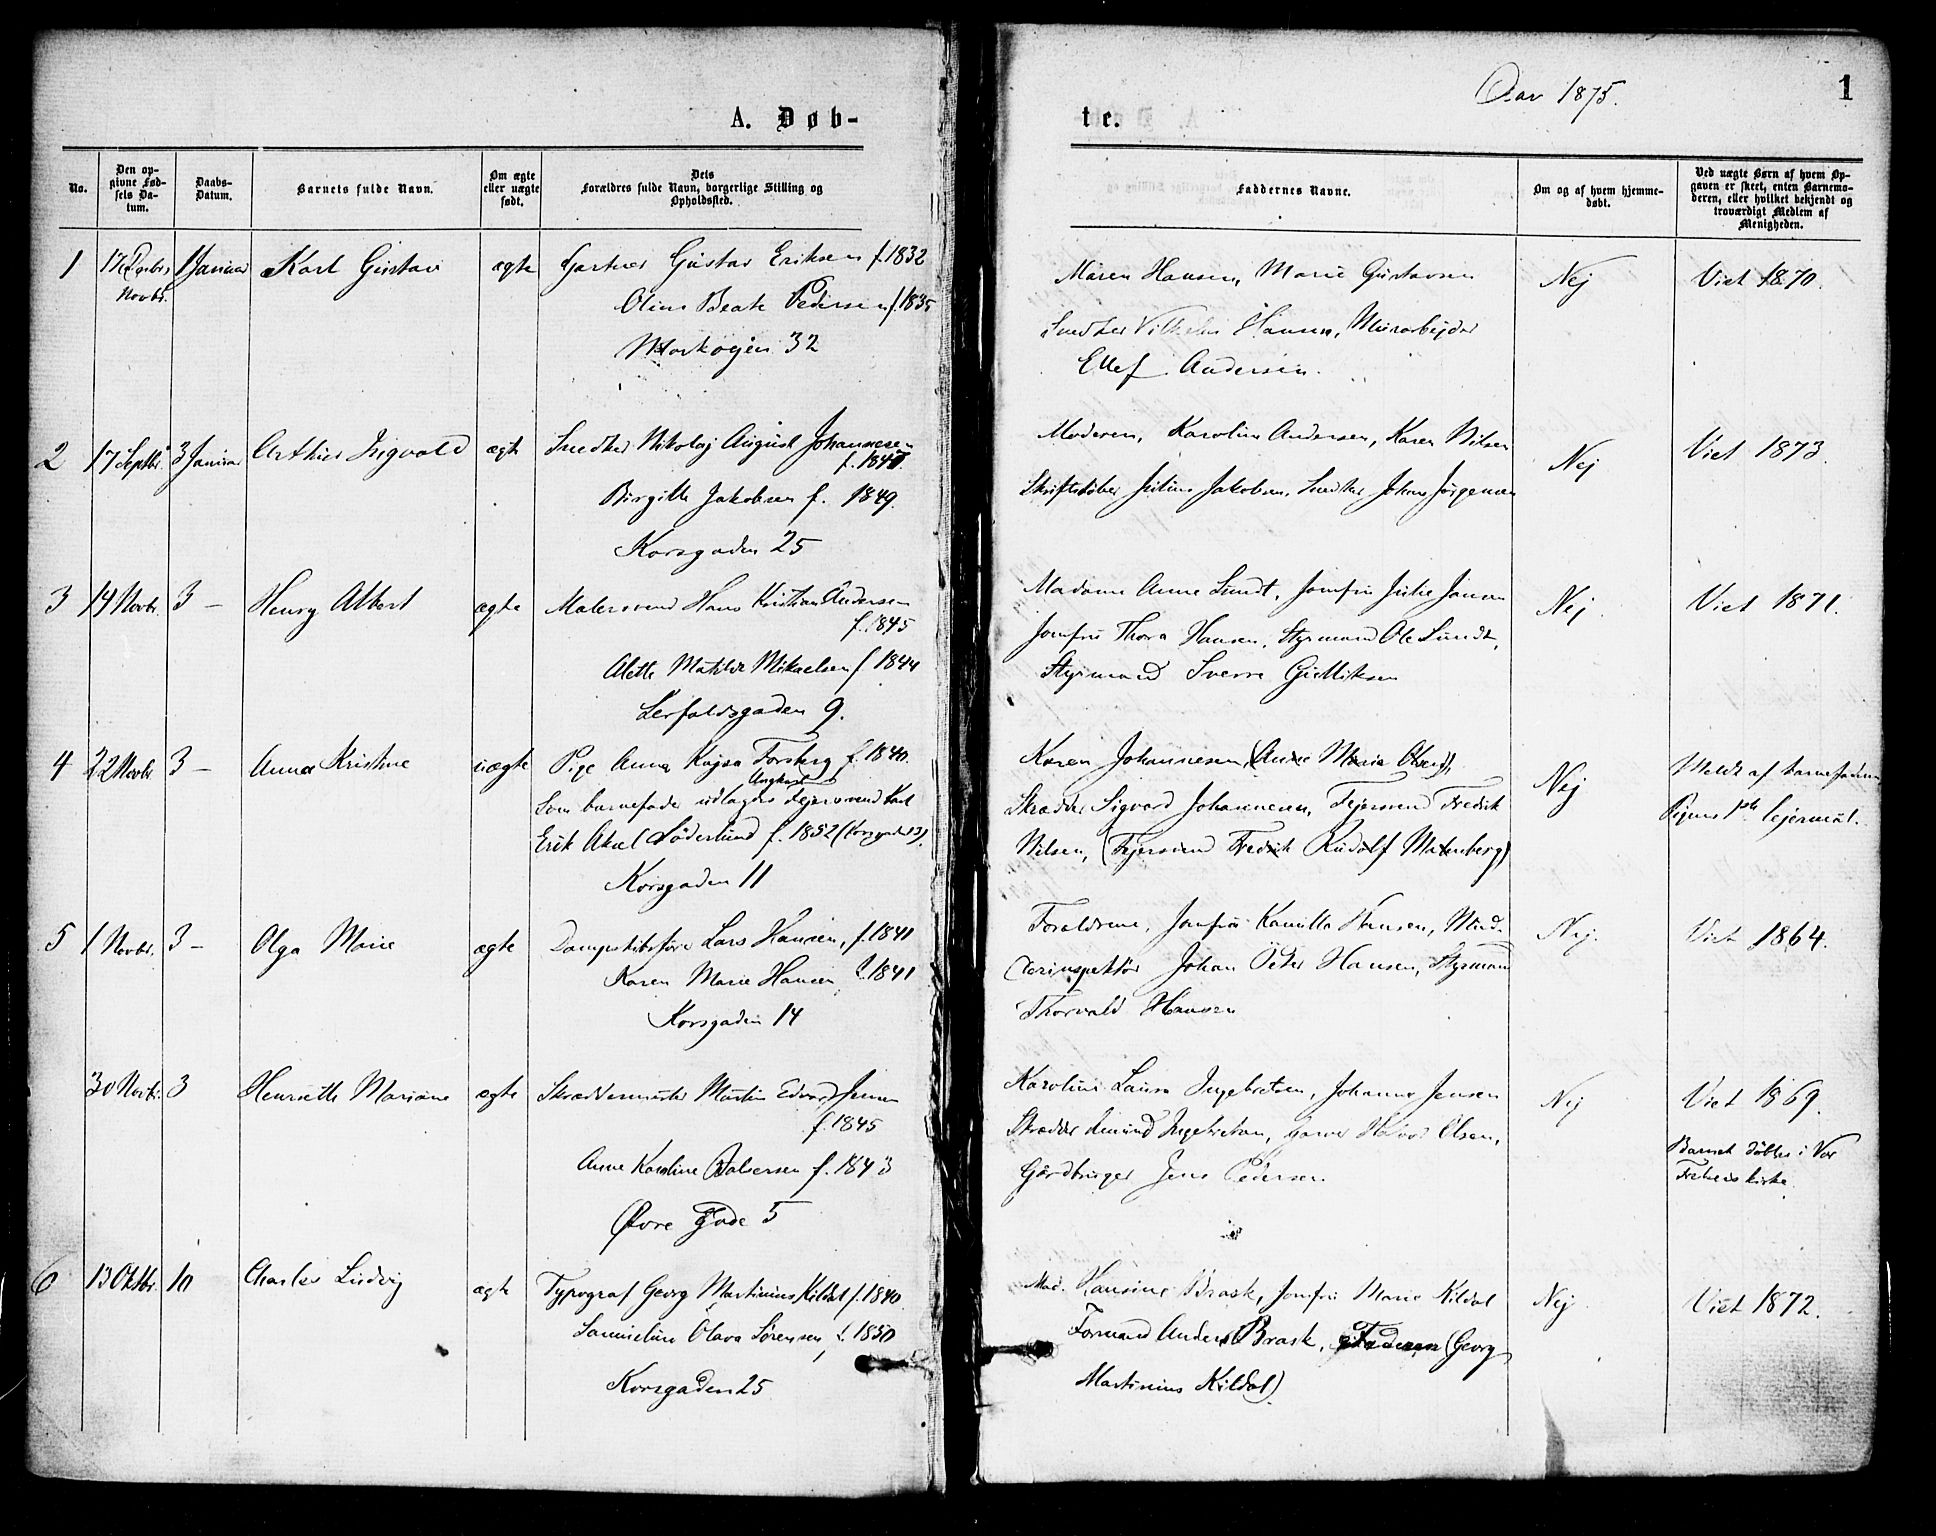 Aar 1875.
1
A. Døb-
te.
No.
Den op-
givne Fød-
sels Da-
tum.
Daabs-
Datum.
Barnets fulde Navn.
Om ægte
eller uægte
født.
Dets
Forældres fulde Navn, borgerlige Stilling og
Opholdssted.
Faddernes Navne.
Om og af hvem hjemme-
døbt.
Ved uægte Børn af hvem Op-
gaven er skeet, enten Barnemo-
deren, eller hvilket bekjendt og
troværdigt Medlem af
Menigheden.
1
17
Novbr.
1 Januar
Karl Gustav
ægte
Gartner Gustav Eriksen f. 1832
Oline Beate Pedersen f. 1835
32
Maren Hansen, Marie Gustavsen
Snedker Vilhelm Hansen, Murarbejder
Ellef Andersen.
Nej
Viet 1870.
2
17 Septbr.
3 Januar
Arthur Ingvald
ægte
Snedker Nikolaj August Johannesen
f. 1847
Birgitte Jakobsen f. 1849.
Korsgaden 25
Moderen, Karoline Andersen, Karen Nilsen
Skriftstøber Julius Jakobsen, Snedker Johan Jørgensen
Nej
Viet 1873.
3
14 Novbr.
3 —
Henry Albert
ægte
Malersvend Hans Kristian Andersen
f. 1845
Alette Matilde Mikaelsen f. 1844
Lerfaldsgaden 9.
Madame Anne Sundt, Jomfru Julie Jansen
Jomfru Thora Hansen, Styrmand Ole Sundt,
Styrmand Sverre Gulliksen
Nej
Viet 1871.
4
22 Novbr.
3 —
Anna Kristine
uægte
Pige Anna Kajsa Forsberg f. 1840.
Ungkarl
Som barnefader udlagdes Fejersvend Karl
Erik Axel Søderlund f. 1852 (Korsgaden 13).
Korsgaden 11
Karen Johannesen, (Anne Marie Olsen),
Skrædder Sigvard Johannesen, Fejersvend Fredrik
Nilsen, (Fejersvend Fredrik Rudolf Matenberg)
Nej
Meldt af barnefaderen
Pigens 1ste Lejermål.
5
1 Novbr.
3 —
Olga Marie
ægte
Dampskibsfører Lars Hansen, f. 1841
Karen Marie Hansen f. 1841
Korsgaden 14
Forældrene, Jomfru Kamilla Hansen, Mud-
derinspektør Johan Peter Hansen, Styrmand
Thorvald Hansen
Nej.
Viet 1864.
30 Novbr.
3
Henriette Mariane
ægte
Skræddermester Martin Edvard Jensen
f. 1845
Anne Karoline f. 1843
Øvre Gade 5
Karoline Laura Ingebretsen, Johanne Jensen
Skrædder Amund Ingebretsen, Garver Halvor Olsen,
Gårdbruger Jens Pedersen
Nej
Viet 1869.
Barnet døbtes i Vor
Frelsers kirke.
6
13 Oktbr.
10
Charles Ludvig
ægte
Typograf Georg Martinius Kildal f. 1840.
Samueline Olava Sørensen, f. 1850
Korsgaden 25
Mad. Hansine Brask, Jomfru Marie Kildal
Formand Anders Brask, Faderen (Georg
Martinius Kildal).
Nej
Viet 1872.